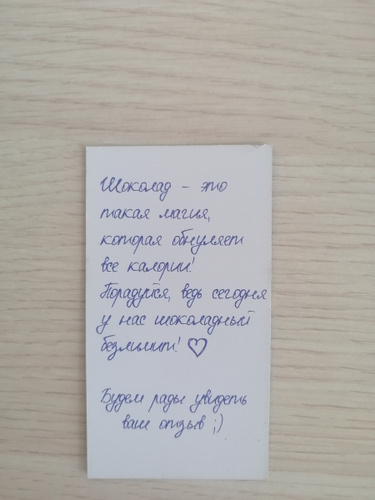 Шоколад - это
такая магия,
которая обнуляет
все калории!
Порадуйся, ведь сегодня
у нас шоколадный
безлимит! ♡
Будем рады увидеть
ваш отзыв ;)